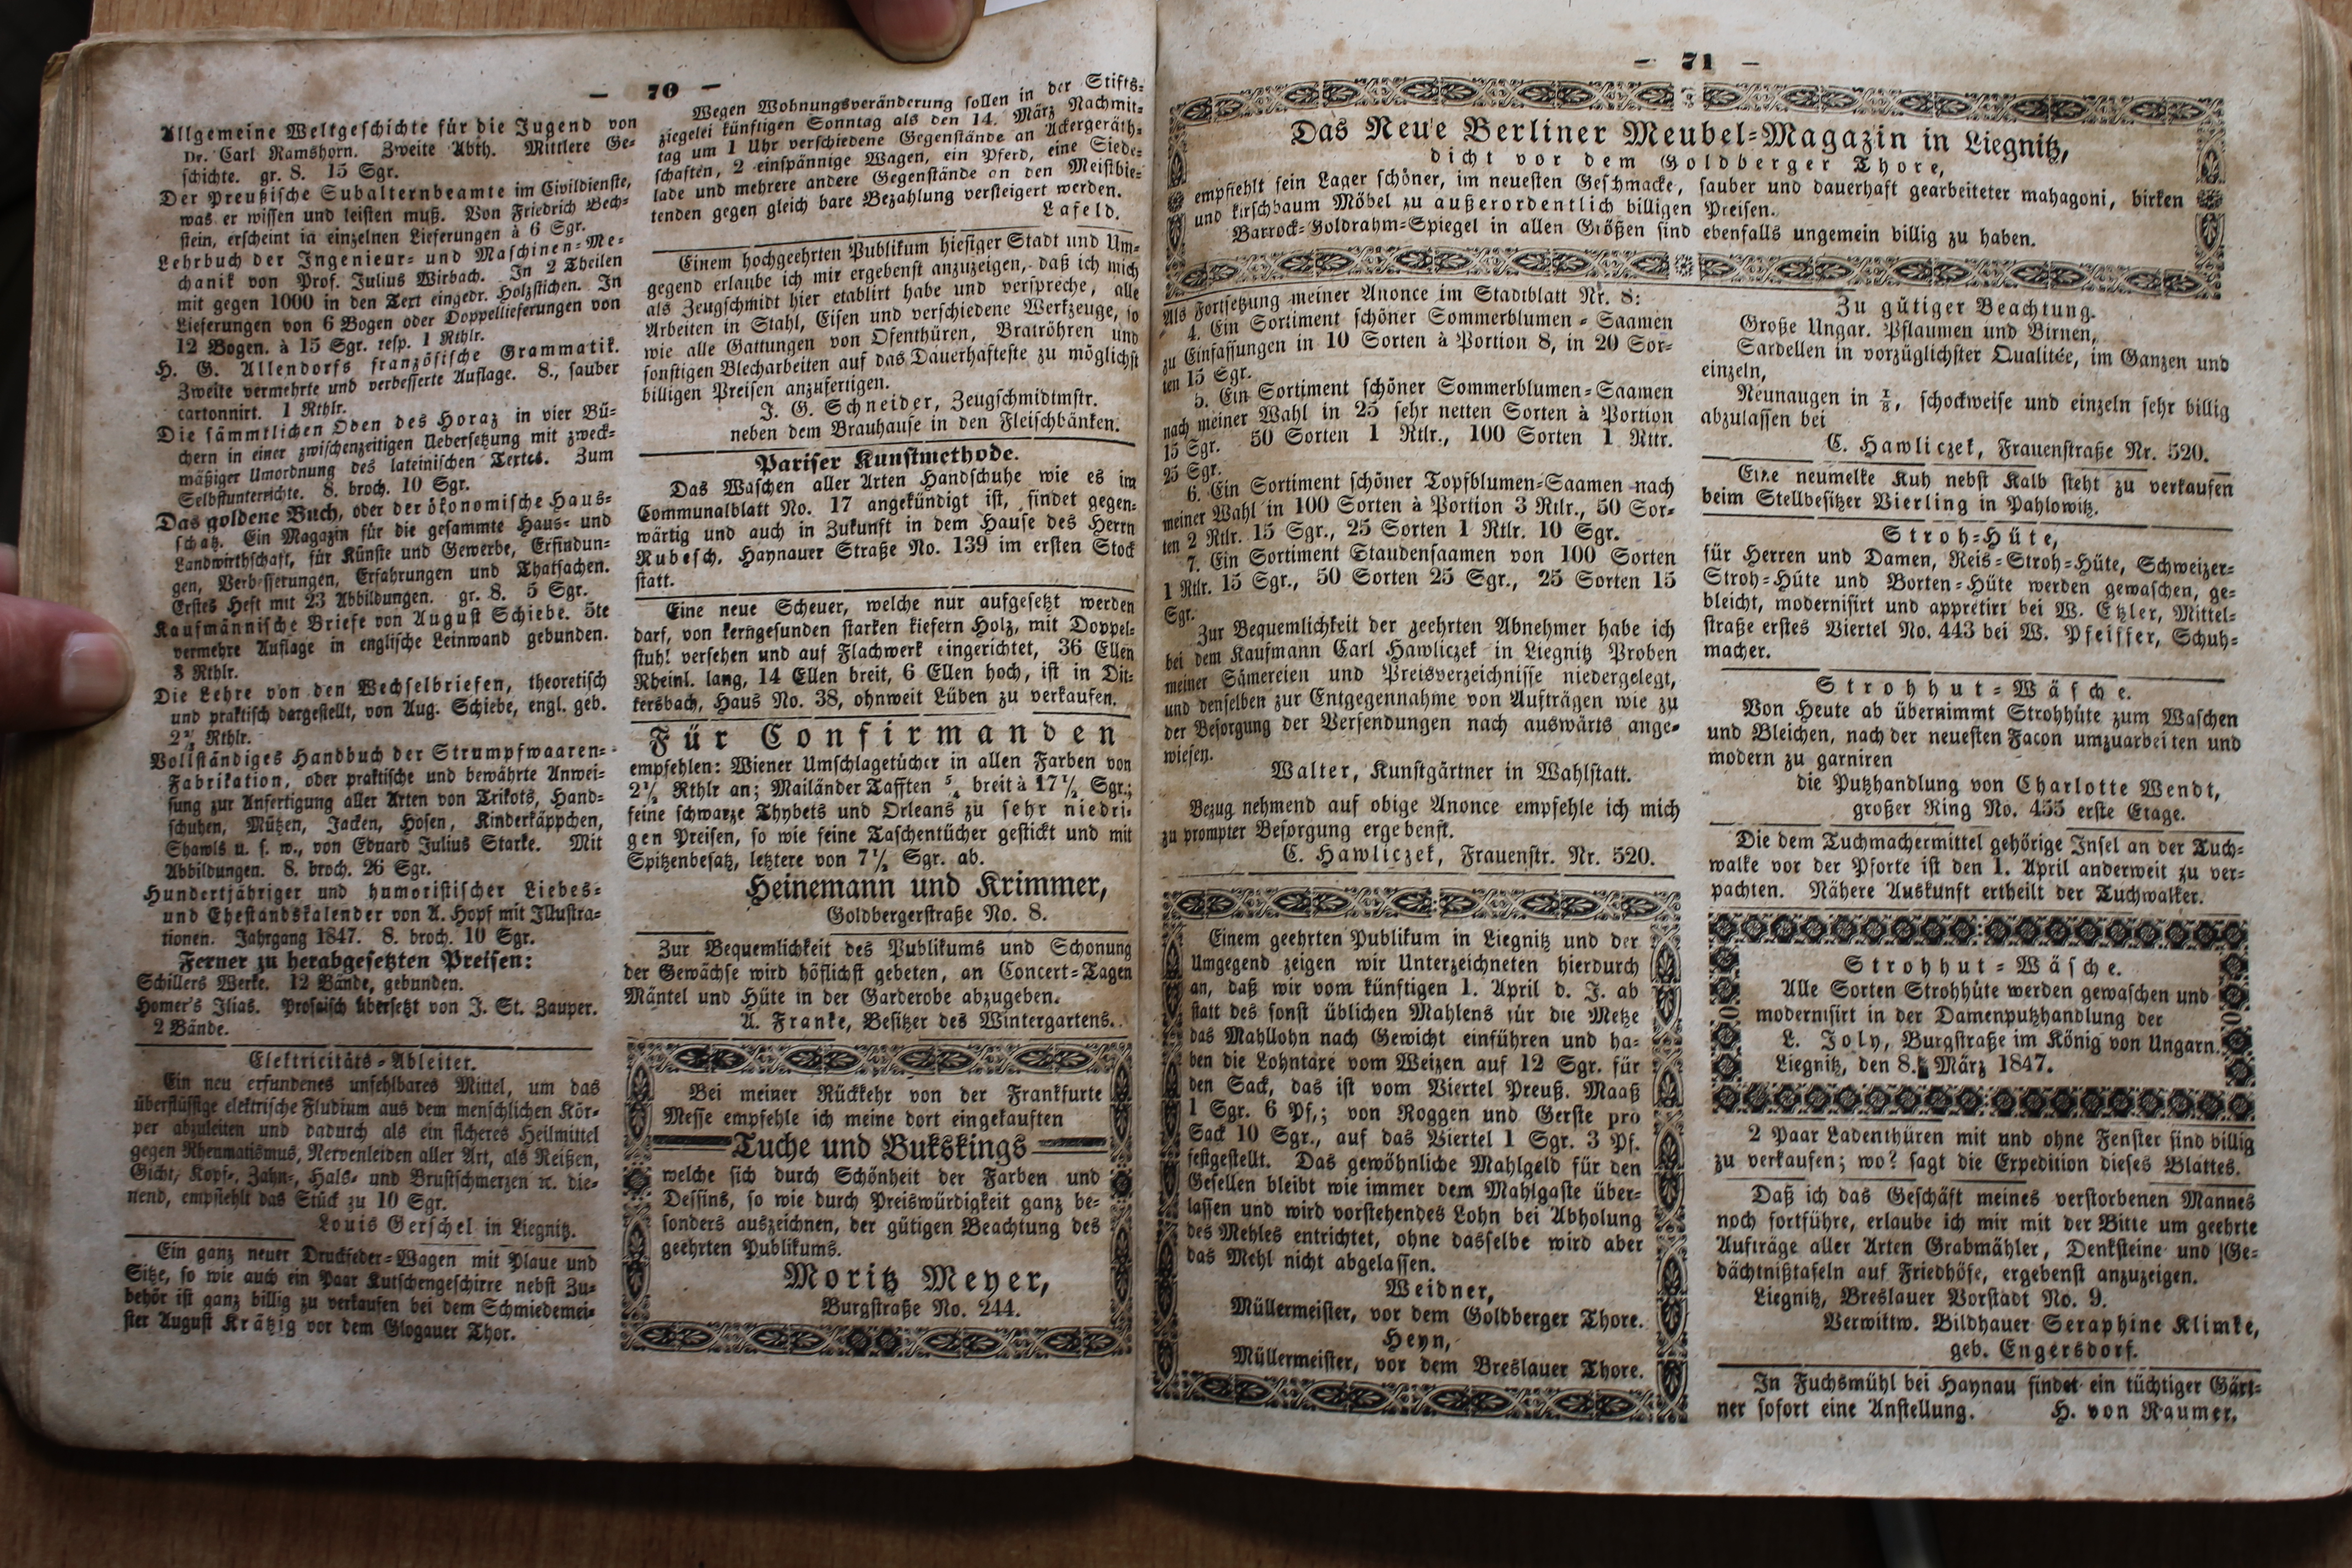 — 70 —
Allgemeine Weltgeschichte für die Jugend von
Dr. Carl Ramshorn. Zweite Abth. Mittlere Ge-
schichte. gr. 8. 15 Sgr.
Der Preußische Subalternbeamte im Civildienste,
was er wissen und leisten muß. Von Friedrich Bech-
stein, erscheint in einzelnen Lieferungen à 6 Sgr.
Lehrbuch der Ingenieur- und Maschinen-Me-
chanik von Prof. Julius Wirbach. In 2 Theilen
mit gegen 1000 in den Text eingedr. Holzstichen. In
Lieferungen von 6 Bogen oder Doppellieferungen von
12 Bogen. à 15 Sgr. resp. 1 Rthlr.
H. G. Allendorfs französische Grammatik.
Zweite vermehrte und verbesserte Auflage. 8., sauber
cartonnirt. 1 Rthlr.
Die sämmtlichen Oden des Horaz in vier Bü-
chern in einer zwischenzeitigen Uebersetzung mit zweck-
mäßiger Umordnung des lateinischen Textes. Zum
Selbstunterrichte. 8. broch. 10 Sgr.
Das goldene Buch, oder der ökonomische Haus-
schatz. Ein Magazin für die gesammte Haus- und
Landwirthschaft, für Künste und Gewerbe, Erfindun-
gen, Verbesserungen, Erfahrungen und Thatsachen.
Erstes Heft mit 23 Abbildungen. gr. 8. 5 Sgr.
Kaufmännische Briefe von August Schiebe. 5te
vermehre Auflage in englische Leinwand gebunden.
3 Rthlr.
Die Lehre von den Wechselbriefen, theoretisch
und praktisch dargestellt, von Aug. Schiebe, engl. geb.
Rthlr.
Vollständiges Handbuch der Strumpfwaaren-
Fabrikation, oder praktische und bewährte Anwei-
sung zur Anfertigung aller Arten von Trikots, Hand-
schuhen, Mützen, Jacken, Hosen, Kinderkäppchen,
Shawls u. s. w., von Eduard Julius Starke. Mit
Abbildungen. 8. broch. 26 Sgr.
Hundertjähriger und humoristischer Liebes-
und Ehestandskalender von A. Hopf mit Illustra-
tionen. Jahrgang 1847. 8. broch. 10 Sgr.
Ferner zu herabgesetzten Preisen:
Schillers Werke. 12 Bände, gebunden.
Homer's Ilias. Prosaisch übersetzt von J. St. Zauper.
2 Bände.
Elektricitäts-Ableiter.
Ein neu erfundenes unfehlbares Mittel, um das
überflüssige elektrische Fludium aus dem menschlichen Kör-
per abzuleiten und dadurch als ein sicheres Heilmittel
gegen Rheumatismus, Nervenleiden aller Art, als Reißen,
Gicht, Kopf-, Zahn-, Hals- und Brustschmerzen ꝛc. die-
nend, empfiehlt das Stück zu 10 Sgr.
Louis Gerschel in Liegnitz.
Ein ganz neuer Druckfeder-Wagen mit Plaue und
Sitze, so wie auch ein Paar Kutschengeschirre nebst Zu-
behör ist ganz billig zu verkaufen bei dem Schmiedemei-
ster August Krätzig vor dem Glogauer Thor.
Wegen Wohnungsveränderung sollen in der Stifts-
ziegelei künftigen Sonntag als den 14. März Nachmit-
tag um 1 Uhr verschiedene Gegenstände an Ackergeräth-
schaften, 2 einspännige Wagen, ein Pferd, eine Siede-
lade und mehrere andere Gegenstände an den Meistbie-
tenden gegen gleich bare Bezahlung versteigert werden.
Lafeld.
Einem hochgeehrten Publikum hiesiger Stadt und Um-
gegend erlaube ich mir ergebenst anzuzeigen, daß ich mich
als Zeugschmidt hier etablirt habe und verspreche, alle
Arbeiten in Stahl, Eisen und verschiedene Werkzeuge, so
wie alle Gattungen von Ofenthüren, Bratröhren und
sonstigen Blecharbeiten auf das Dauerhafteste zu möglichst
billigen Preisen anzufertigen.
J. G. Schneider, Zeugschmidtmstr.
neben dem Brauhause in den Fleischbänken.
Pariser Kunstmethode.
Das Waschen aller Arten Handschuhe wie es im
Communalblatt No. 17 angekündigt ist, findet gegen-
wärtig und auch in Zukunft in dem Hause des Herrn
Rubesch, Haynauer Straße No. 139 im ersten Stock
statt.
Eine neue Scheuer, welche nur aufgesetzt werden
darf, von kerngesunden starken kiefern Holz, mit Doppel-
stuhl versehen und auf Flachwerk eingerichtet, 36 Ellen
Rheinl. lang, 14 Ellen breit, 6 Ellen hoch, ist in Dit-
tersbach, Haus No. 38, ohnweit Lüben zu verkaufen.
Für Confirmanden
empfehlen: Wiener Umschlagetücher in allen Farben von
2½ Rthlr an; Mailänder Tafften 5/4 breit à 17½ Sgr.;
feine schwarze Thybets und Orleans zu sehr niedri-
gen Preisen, so wie feine Taschentücher gestickt und mit
Spitzenbesatz, letztere von 7½ Sgr. ab.
Heinemann und Krimmer,
Goldbergerstraße No. 8.
Zur Bequemlichkeit des Publikums und Schonung
der Gewächse wird höflichst gebeten, an Concert-Tagen
Mäntel und Hüte in der Garderobe abzugeben.
A. Franke, Besitzer des Wintergartens.
Bei meiner Rückkehr von der Frankfurte
Messe empfehle ich meine dort eingekauften
Tuche und Bukskings
welche sich durch Schönheit der Farben und
Dessins, so wie durch Preiswürdigkeit ganz be-
sonders auszeichnen, der gütigen Beachtung des
geehrten Publikums.
Moritz Meyer,
Burgstraße No. 244.
— 71 —
Das Neue Berliner Meubel-Magazin in Liegnitz,
dicht vor dem Goldberger Thore,
empfiehlt sein Lager schöner, im neuesten Geschmacke, sauber und dauerhaft gearbeiteter mahagoni, birken
und kirschbaum Möbel zu außerordentlich billigen Preisen.
Barrock-Goldrahm-Spiegel in allen Größen sind ebenfalls ungemein billig zu haben.
Als Fortsetzung meiner Anonce im Stadtblatt Nr. 8:
4. Ein Sortiment schöner Sommerblumen-Saamen
zu Einfassungen in 10 Sorten à Portion 8, in 20 Sor-
ten 15 Sgr.
5. Ein Sortiment schöner Sommerblumen-Saamen
nach meiner Wahl in 25 sehr netten Sorten à Portion
15 Sgr. 50 Sorten 1 Rtlr., 100 Sorten 1 Rttr.
25 Sgr.
6. Ein Sortiment schöner Topfblumen-Saamen nach
meiner Wahl in 100 Sorten à Portion 3 Rtlr., 50 Sor-
ten 2 Rtlr. 15 Sgr., 25 Sorten 1 Rtlr. 10 Sgr.
7. Ein Sortiment Staudensaamen von 100 Sorten
1 Rtlr. 15 Sgr., 50 Sorten 25 Sgr., 25 Sorten 15
Sgr.
Zur Bequemlichkeit der geehrten Abnehmer habe ich
bei dem Kaufmann Carl Hawliczek in Liegnitz Proben
meiner Sämereien und Preisverzeichnisse niedergelegt,
und denselben zur Entgegennahme von Aufträgen wie zu
der Besorgung der Versendungen nach auswärts ange-
wiesen.
Walter, Kunstgärtner in Wahlstatt.
Bezug nehmend auf obige Anonce empfehle ich mich
zu prompter Besorgung ergebenst.
C. Hawliczek, Frauenstr. Nr. 520.
Einem geehrten Publikum in Liegnitz und der
Umgegend zeigen wir Unterzeichneten hierdurch
an, daß wir vom künftigen 1. April d. J. ab
statt des sonst üblichen Mahlens für die Metze
das Mahllohn nach Gewicht einführen und ha-
ben die Lohntaxe vom Weizen auf 12 Sgr. für
den Sack, das ist vom Viertel Preuß. Maaß
1 Sgr. 6 Pf,; von Roggen und Gerste pro
Sack 10 Sgr., auf das Viertel 1 Sgr. 3 Pf.
festgestellt. Das gewöhnliche Mahlgeld für den
Gesellen bleibt wie immer dem Mahlgaste über-
lassen und wird vorstehendes Lohn bei Abholung
des Mehles entrichtet, ohne dasselbe wird aber
das Mehl nicht abgelassen.
Weidner,
Müllermeister, vor dem Goldberger Thore.
Heyn,
Müllermeister, vor dem Breslauer Thore.
Zu gütiger Beachtung.
Große Ungar. Pflaumen und Birnen,
Sardellen in vorzüglichster Qualitée, im Ganzen und
einzeln,
Neunaugen in ⅛, schockweise und einzeln sehr billig
abzulassen bei
C. Hawliczek, Frauenstraße Nr. 520.
Eine neumelke Kuh nebst Kalb steht zu verkaufen
beim Stellbesitzer Vierling in Pahlowitz.
Stroh-Hüte,
für Herren und Damen, Reis-Stroh-Hüte, Schweizer-
Stroh-Hüte und Borten-Hüte werden gewaschen, ge-
bleicht, modernisirt und appretirt bei W. Etzler, Mittel-
straße erstes Viertel No. 443 bei W. Pfeiffer, Schuh-
macher.
Strohhut-Wäsche.
Von Heute ab übernimmt Strohhüte zum Waschen
und Bleichen, nach der neuesten Facon umzuarbeiten und
modern zu garniren
die Putzhandlung von Charlotte Wendt,
großer Ring No. 455 erste Etage.
Die dem Tuchmachermittel gehörige Insel an der Tuch-
walke vor der Pforte ist den 1. April anderweit zu ver-
pachten. Nähere Auskunft ertheilt der Tuchwalker.
Strohhut-Wäsche.
Alle Sorten Strohhüte werden gewaschen und
modernisirt in der Damenputzhandlung der
L. Joly, Burgstraße im König von Ungarn.
Liegnitz, den 8. März 1847.
2 Paar Ladenthüren mit und ohne Fenster sind billig
zu verkaufen; wo? sagt die Expedition dieses Blattes.
Daß ich das Geschäft meines verstorbenen Mannes
noch fortführe, erlaube ich mir mit der Bitte um geehrte
Aufträge aller Arten Grabmähler, Denksteine und Ge-
dächtnißtafeln auf Friedhöfe, ergebenst anzuzeigen.
Liegnitz, Breslauer Vorstadt No. 9.
Verwittw. Bildhauer Seraphine Klimke,
geb. Engersdorf.
In Fuchsmühl bei Haynau findet ein tüchtiger Gärt-
ner sofort eine Anstellung. H. von Raumer.